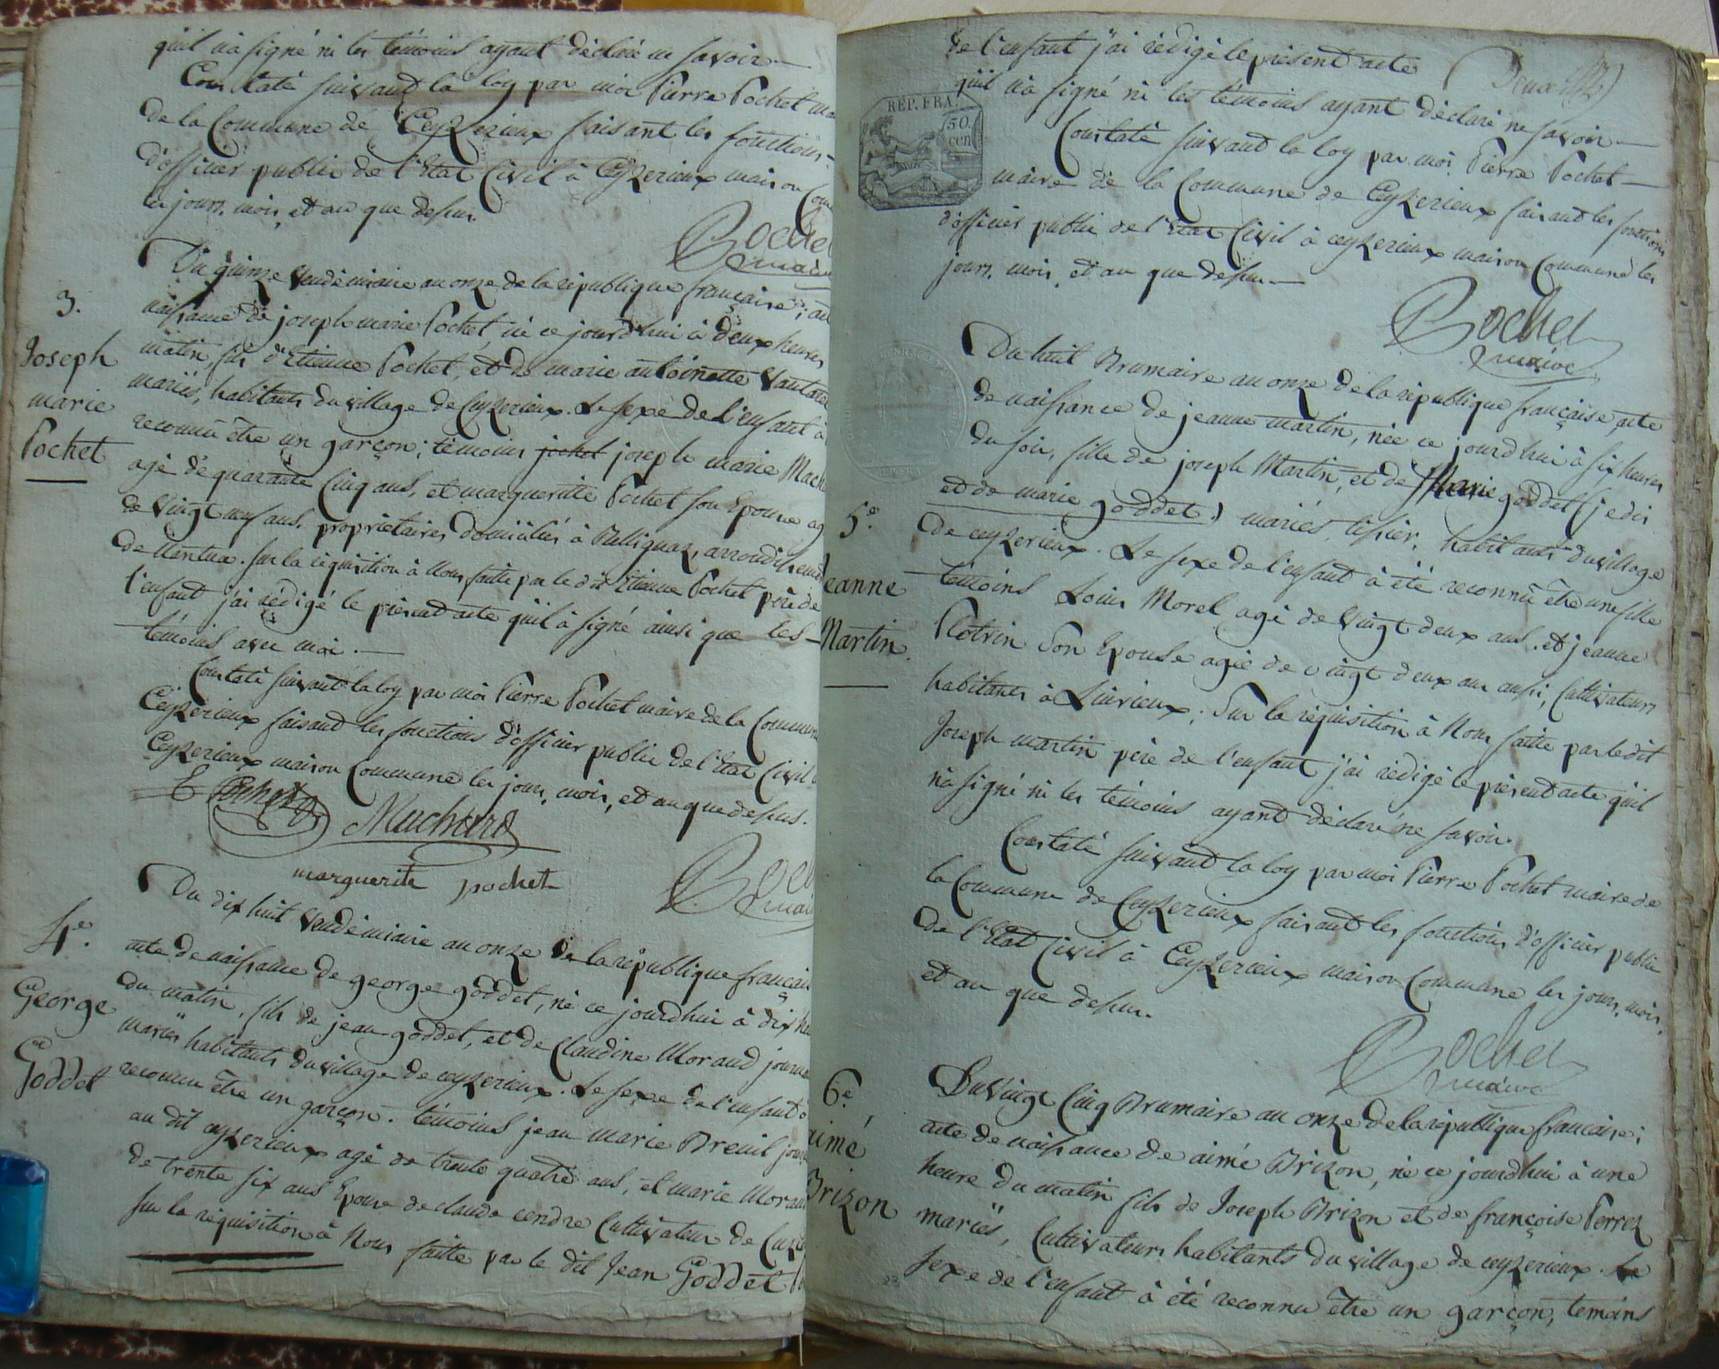 qu'il n'a signé ni les témoins ayant déclaré ne savoir —
Constaté suivant la loy par moi Pierre Pochet ma
de la Commune de Ceyzerieux faisant les fonctions
d'officier public de l'Etat Civil à Ceyzerieux maison Com
les jours, mois et an que dessus.
Pochet
maire
3.
Joseph
marie
Pochet
Du quinze vendémiaire an onze de la république française; au
naissance de joseph marie Pochet, né ce jourd'hui à deux heures
matin, fils d'Etienne Pochet, et de marie antoinette
mariés, habitants du village de Ceyzerieux. Le sexe de l'enfant à
reconnu être un garçon; témoins pochet joseph marie Mach
agé de quarante Cinq ans, et marguerite Pochet son Epouse ag
de vingt neuf ans, propriétaires domiciliés à Bellignaz, arrondissem
de Nantua. Sur la réquisition à Nous faitte par le dit Etienne Pochet père de
l'enfant j'ai rédigé le présent acte qu'il à signé ainsi que les —
témoins avec moi. —
Constaté suivant la loy par moi Pierre Pochet maire de la Commune
Ceyzerieux faisant les fonctions d'officier public de l'Etat Civil à
Ceyzerieux maison Commune les jours, mois, et an que dessus.
E Pochet
Machard
marguerite pochet
Poch
mair
4e.
George
Goddet
Du dix huit vendémiaire an onze de la république françai
acte de naissance de george goddet, né ce jourd'hui à dix he
du matin, fils de jean goddet, et de Claudine Moraud journa
mariés habitants du village de ceyzerieux. Le sexe de l'enfant à
reconnu être un garçon. témoins jean marie Breuil jour
au dit ceyzerieux agé de trente quatre ans, et marie Morau
de trente six ans Epouse de claude cendre Cultivateur de
sur la réquisition à Nous faitte par le dit Jean Goddet
de l'enfant j'ai rédigé le présent acte
qu'il n'a signé ni les témoins ayant déclaré ne savoir —
REP. FRA.
50.
cen
Constaté suivant la loy par moi Pierre Pochet —
maire de la Commune de Ceyzerieux faisant les fonctions
d'officier public de l'Etat Civil à ceyzerieux maison Commune les
jours, mois, et an que dessus —
Pochet
maire
5e.
Jeanne
Martin.
Du huit Brumaire an onze de la république française, acte
de naissance de jeanne martin, née ce jourd'hui à six heures
du soir, fille de joseph Martin, et de Marie goddet (je dis
et de marie goddet) mariés, tissier, habitants du village
de ceyzerieux. Le sexe de l'enfant à été reconnu être une fille
témoins Louis Morel agé de vingt deux ans, et jeanne
Flotrin Son Epouse agée de vingt deux ans aussi, Cultivateurs
habitants à Luirieux; Sur la réquisition à Nous faitte par le dit
Joseph martin père de l'enfant j'ai rédigé le présent acte qu'il
n'a signé ni les témoins ayant déclaré ne savoir.
Constaté suivant la loy par moi Pierre Pochet maire de
la Commune de Ceyzerieux faisant les fonctions d'officier public
de l'Etat Civil à Ceyzerieux maison Commune les jours, mois,
et an que dessus.
Pochet
maire
6e.
aimé
Brizon
Du Vingt Cinq Brumaire an onze de la république francaise;
acte de naissance de aimé Brizon, né ce jourd'hui à une
heure du matin fils de Joseph Brizon et de françoise Perrez
mariés, Cultivateurs habitants du village de ceyzerieux. Le
sexe de l'enfant à été reconnu être un garçon, temoins